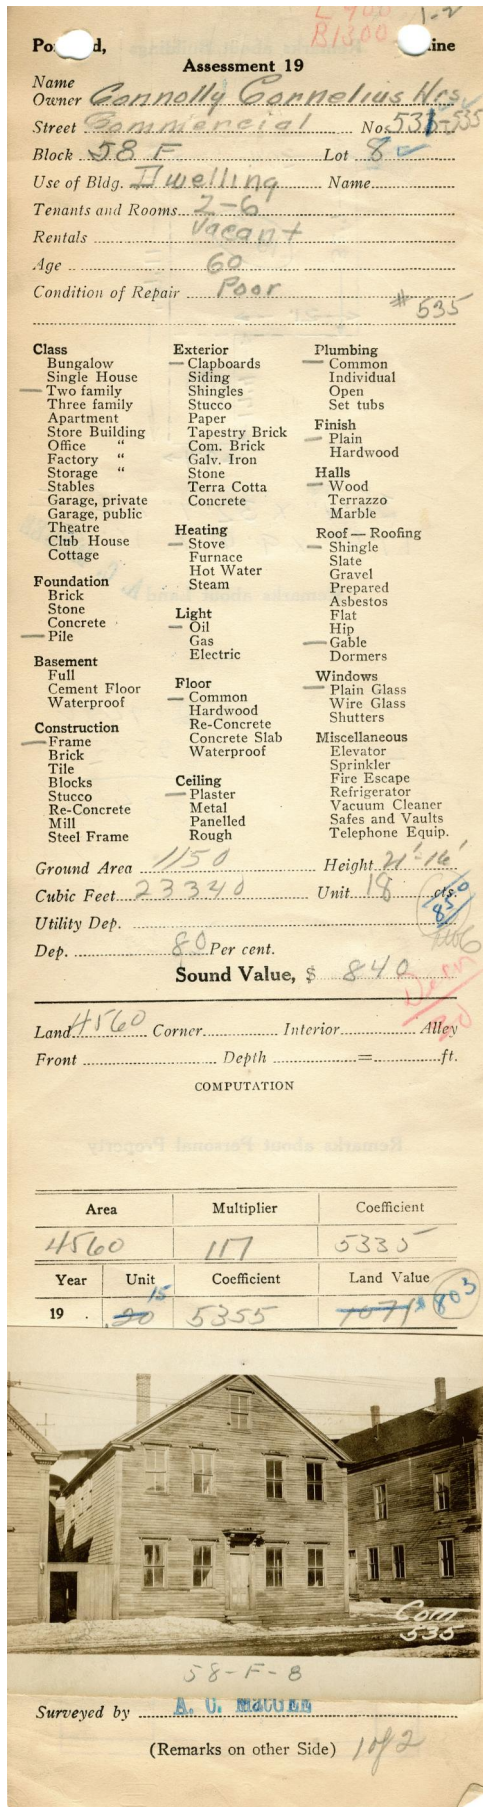 L 900 1-2
B1300
Po d, ine
Assessment 19
Name
Owner Connolly Cornelius Hrs
Street Commercial No. 531-535
Block 58 F Lot 8
Use of Bldg. Dwelling Name
Tenants and Rooms 2-6
Rentals Vacant
Age 60
Condition of Repair Poor
# 535
Class
Bungalow
Single House
— Two family
Three family
Apartment
Store Building
Office "
Factory "
Storage "
Stables
Garage, private
Garage, public
Theatre
Club House
Cottage
Foundation
Brick
Stone
Concrete
— Pile
Basement
Full
Cement Floor
Waterproof
Construction
— Frame
Brick
Tile
Blocks
Stucco
Re-Concrete
Mill
Steel Frame
Exterior
— Clapboards
Siding
Shingles
Stucco
Paper
Tapestry Brick
Com. Brick
Galv. Iron
Stone
Terra Cotta
Concrete
Heating
— Stove
Furnace
Hot Water
Steam
Light
— Oil
Gas
Electric
Floor
— Common
Hardwood
Re-Concrete
Concrete Slab
Waterproof
Ceiling
— Plaster
Metal
Panelled
Rough
Plumbing
— Common
Individual
Open
Set tubs
Finish
— Plain
Hardwood
Halls
— Wood
Terrazzo
Marble
Roof — Roofing
— Shingle
Slate
Gravel
Prepared
Asbestos
Flat
Hip
— Gable
Dormers
Windows
— Plain Glass
Wire Glass
Shutters
Miscellaneous
Elevator
Sprinkler
Fire Escape
Refrigerator
Vacuum Cleaner
Safes and Vaults
Telephone Equip.
Ground Area 1150 Height 21'-16'
Cubic Feet 23340 Unit 18 cts.
850
Utility Dep.
Dep. 80 Per cent.
Sound Value, $ 840
Land 4560 Corner Interior Alley
Front Depth = ft.
COMPUTATION
Area Multiplier Coefficient
4560 117 5335
Year Unit Coefficient Land Value
15
19 . .20 5355 1071 $803
Com
535
58-F-8
Surveyed by A. C. MAGEE
(Remarks on other Side) 1 of 2